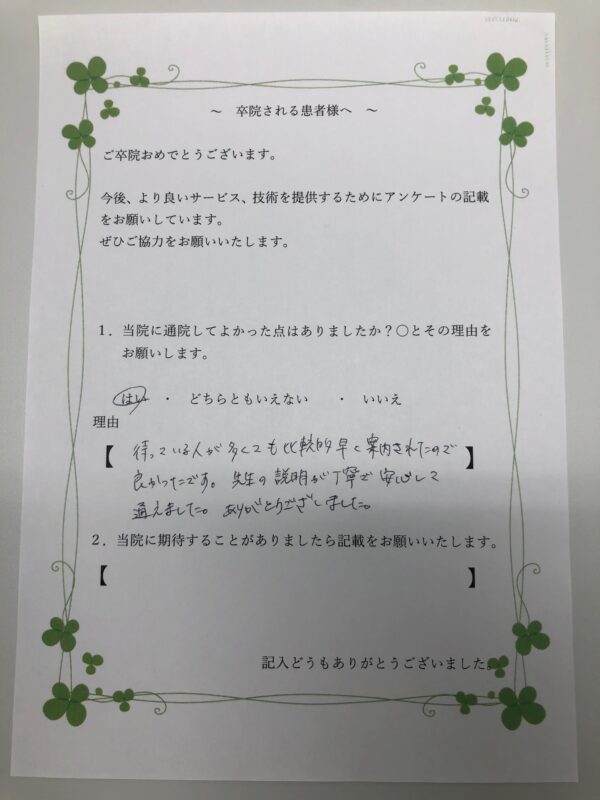 ～ 卒院される患者様へ ～
ご卒院おめでとうございます。
今後、より良いサービス、技術を提供するためにアンケートの記載
をお願いしています。
ぜひご協力をお願いいたします。
1．当院に通院してよかった点はありましたか？○とその理由を
お願いします。
はい ・ どちらともいえない ・ いいえ
理由
【 待っている人が多くても比較的早く案内されたので 】
良かったです。先生の説明が丁寧で安心して
通えました。ありがとうございました。
2．当院に期待することがありましたら記載をお願いいたします。
【 】
記入どうもありがとうございました。